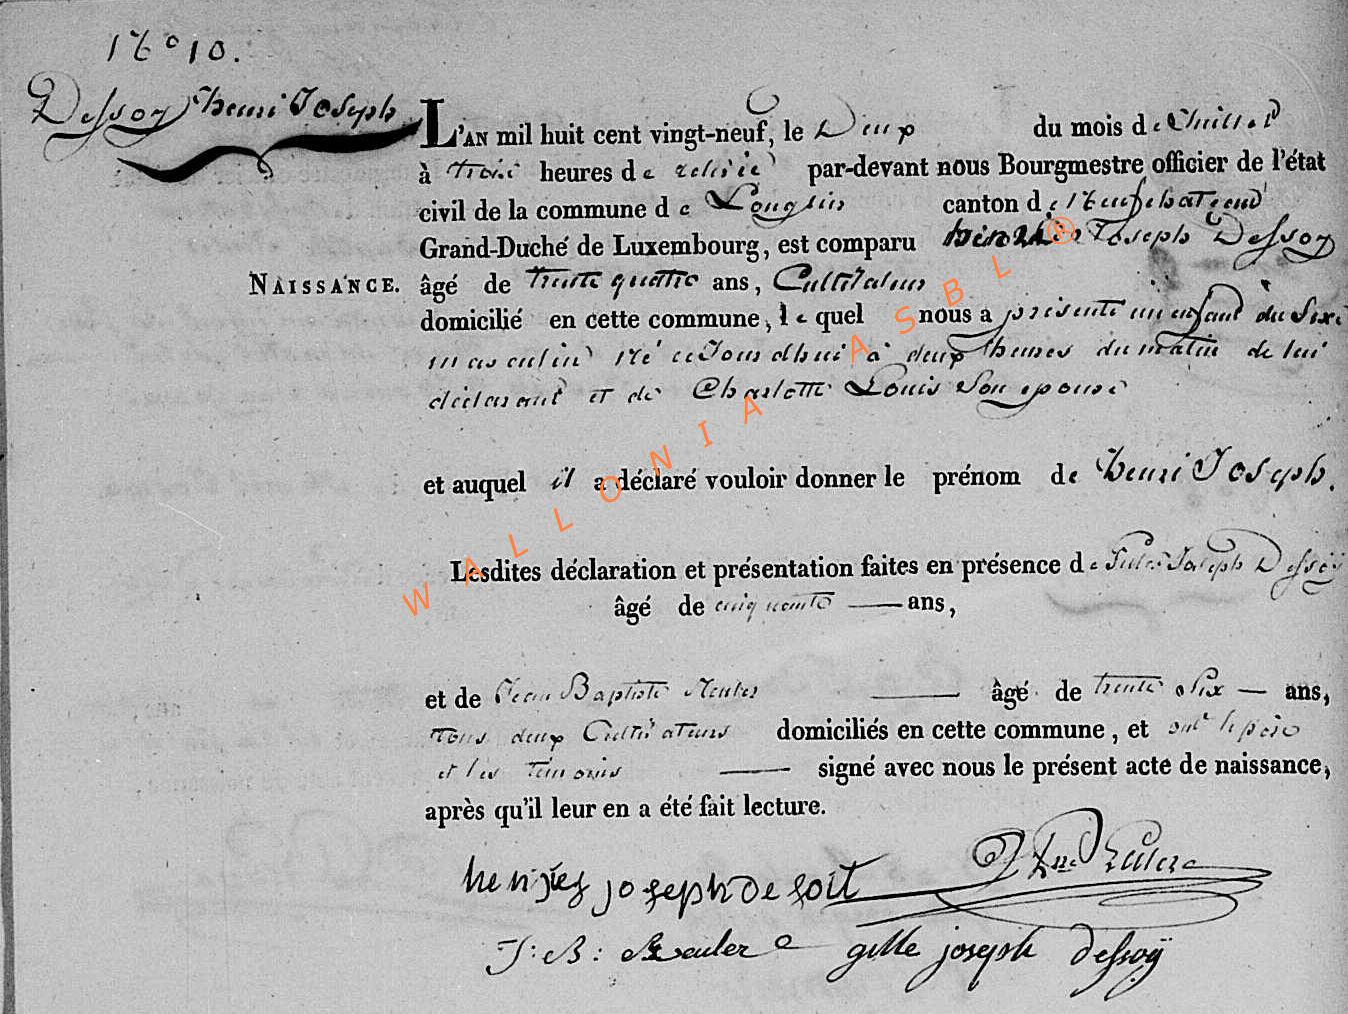 N° 10.
Dessoy henri Joseph
L'AN mil huit cent vingt-neuf, le Deux du mois de Juillet
à trois heures de relevée par-devant nous Bourgmestre officier de l'état
civil de la commune de Longlier canton de Neufchateau
Grand-Duché de Luxembourg, est comparu Joseph Dessoy
NAISSANCE. âgé de trente quatre ans, Cultivateur
domicilié en cette commune, le quel nous a présenté un enfant du Sexe
masculin Né ce Jourdhui à deux heures du matin de lui
déclarant et de Charlotte Louis Son epouse
et auquel il a déclaré vouloir donner le prénom de henri Joseph.
Lesdites déclaration et présentation faites en présence de Joseph Dessoÿ
âgé de cinquante ans,
et de Jean Baptiste âgé de trente Six ans,
tous deux Cultivateurs domiciliés en cette commune, et ont le père
et les témoins signé avec nous le présent acte de naissance,
après qu'il leur en a été fait lecture.
joseph de soit
J: B: gille joseph dessoÿ
WALLONIA ASBL ®